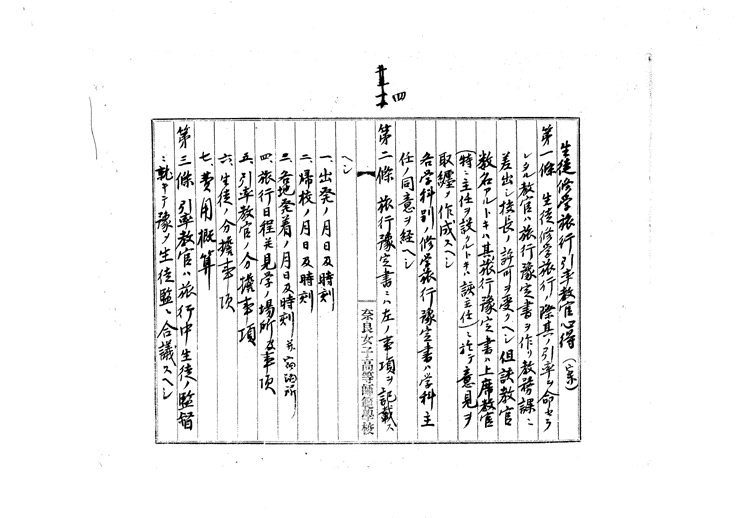 四
生徒修学旅行引率教官心得(案)
第一條 生徒修学旅行ノ際其ノ引率ヲ命セラ
レタル教官ハ旅行豫定書ヲ作リ教務課ニ
差出シ校長ノ許可ヲ受クヘシ但該教官
数名アルトキハ其旅行豫定書ハ上席教官
(特ニ主任ヲ設クルトキハ該主任)ニ於テ意見ヲ
取纏メ作成スヘシ
各学科別ノ修学旅行豫定書ハ学科主
任ノ同意ヲ経ヘシ
第二條 旅行豫定書ニハ左ノ事項ヲ記載ス
奈良女子高等師範學校
ヘシ
一、出発ノ月日及時刻
二、帰校ノ月日及時刻
三、各地発着ノ月日及時刻並宿泊所
四、旅行日程並見学ノ場所及事項
五、引率教官ノ分擔事項
六、生徒ノ分擔事項
七、費用概算
第三條 引率教官ハ旅行中生徒ノ監督
ニ就キテ豫メ生徒監ト合議スヘシ